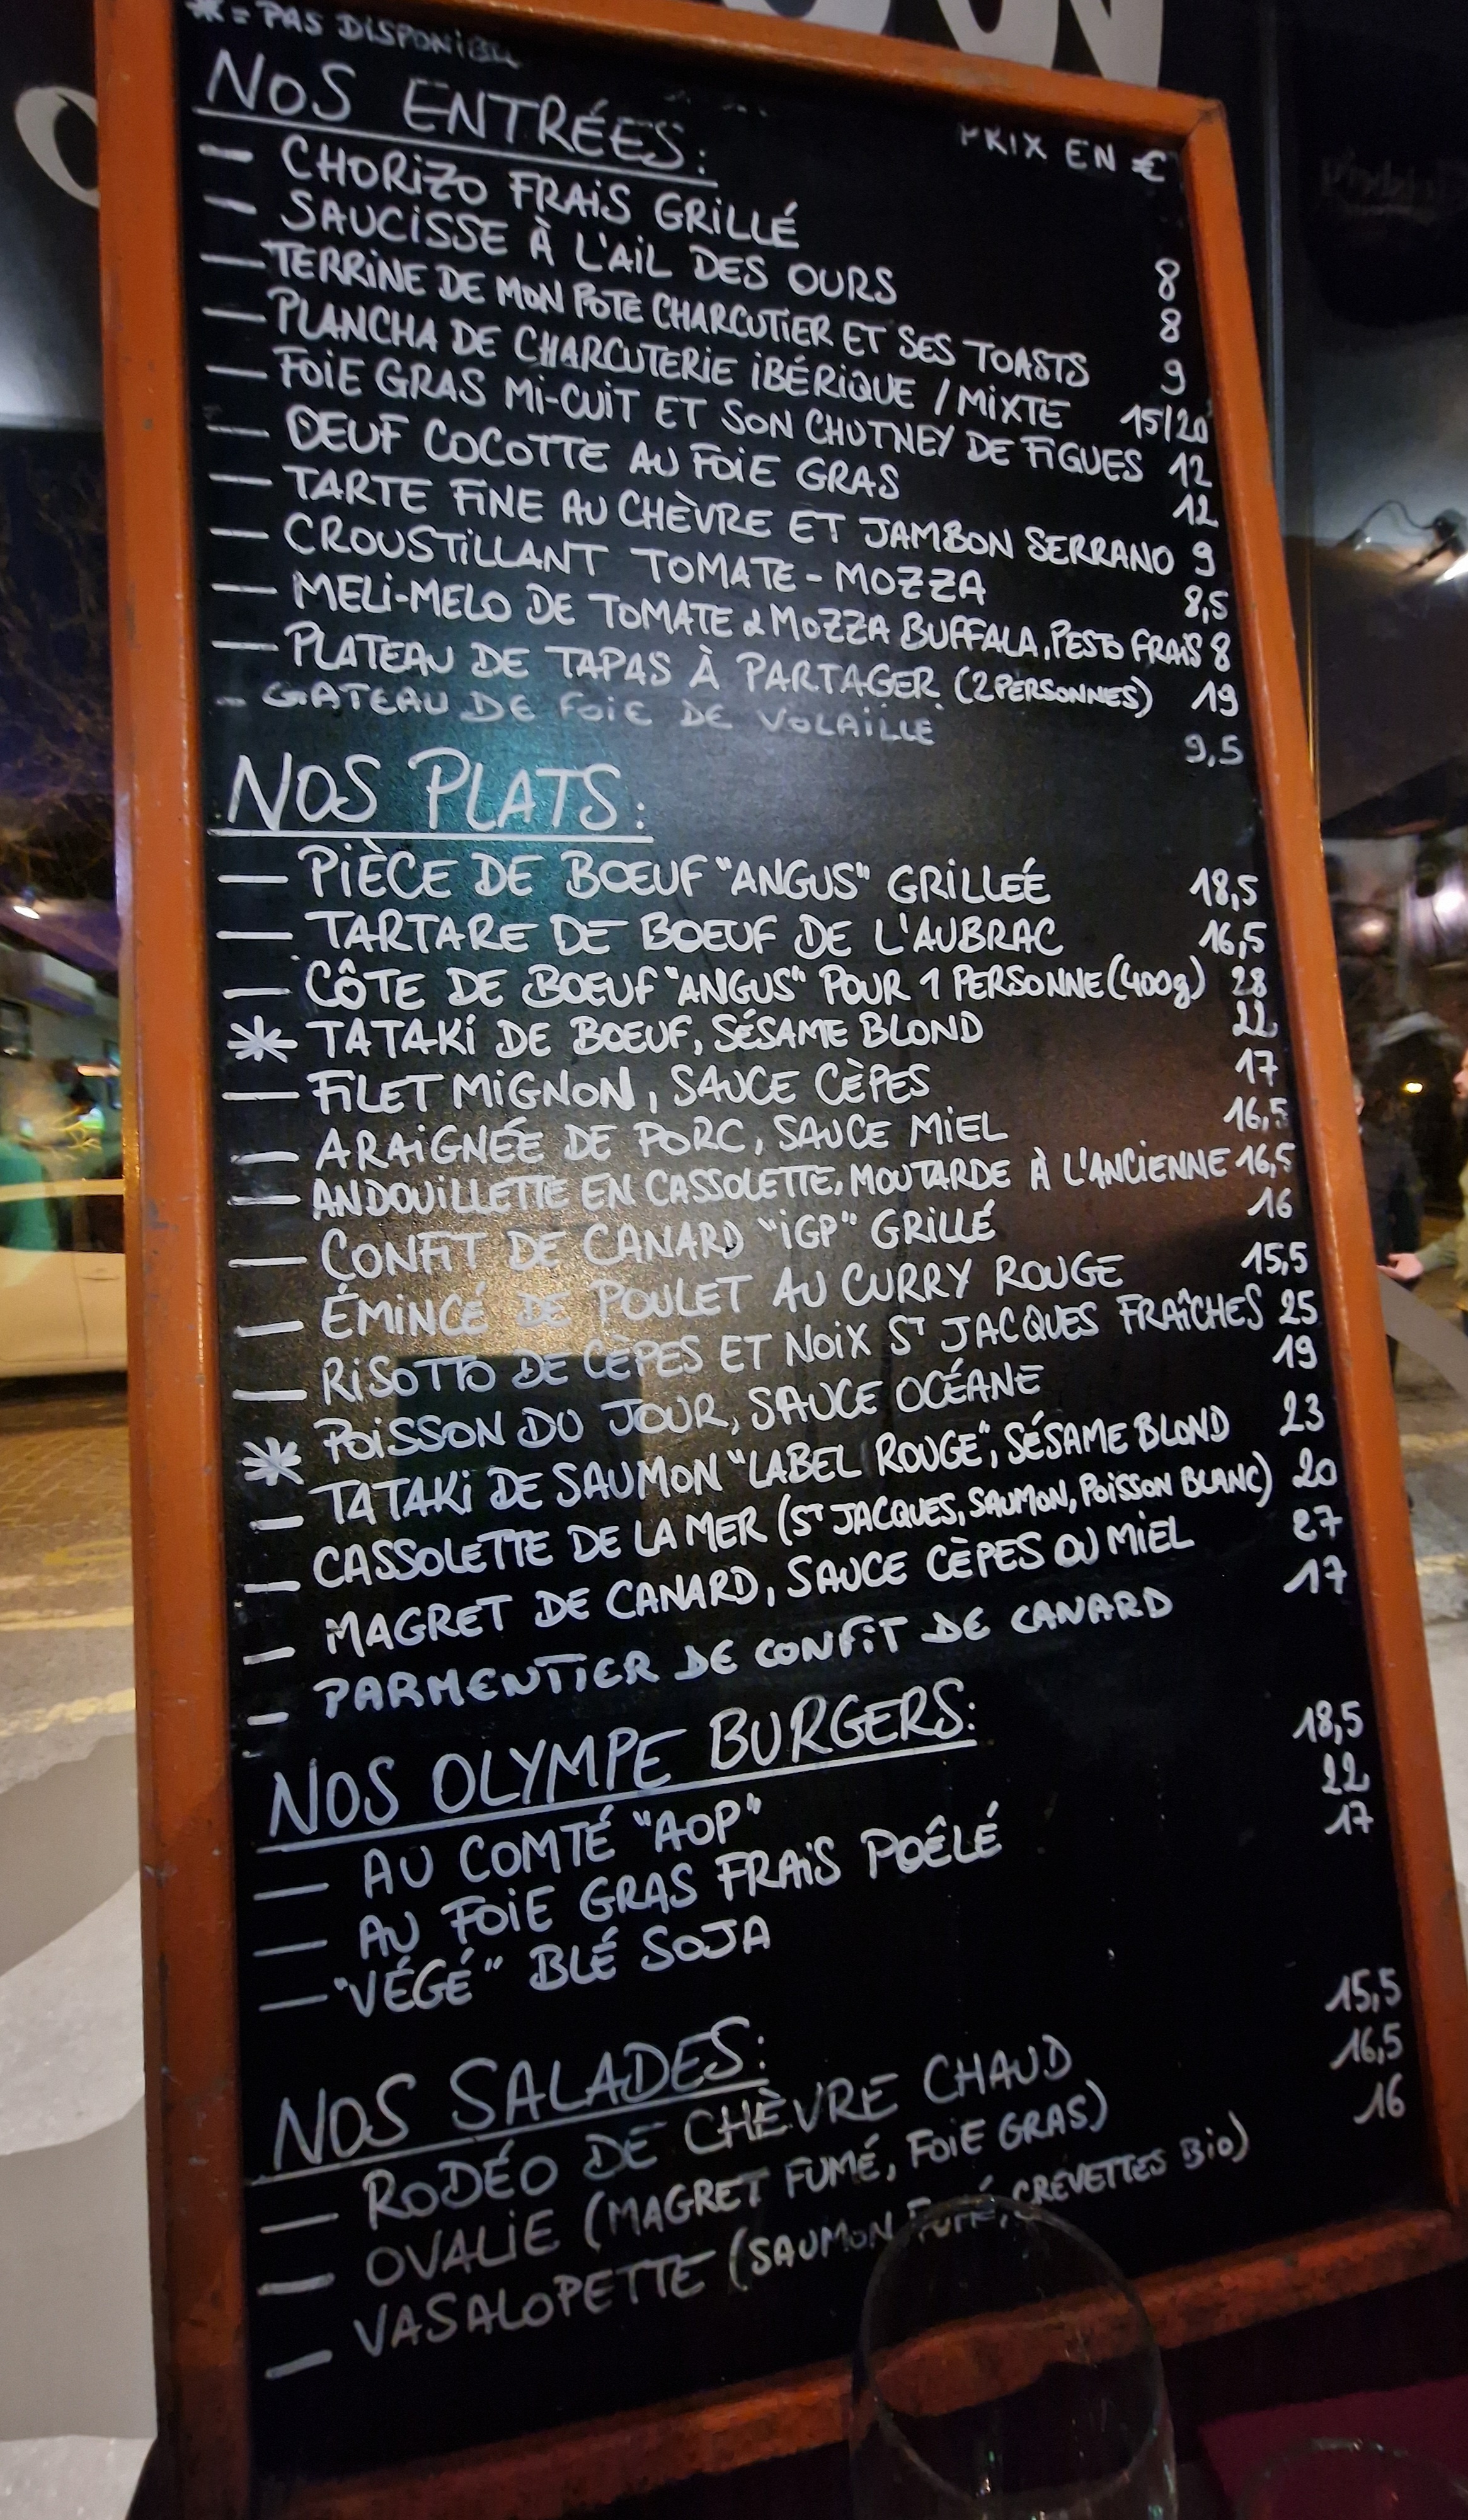 * = PAS DISPONIBLE
NOS ENTRÉES:
PRIX EN €
— CHORIZO FRAIS GRILLÉ 8
— SAUCISSE À L'AIL DES OURS 8
— TERRINE DE MON POTE CHARCUTIER ET SES TOASTS 9
— PLANCHA DE CHARCUTERIE IBÉRIQUE / MIXTE 15/20
— FOIE GRAS MI-CUIT ET SON CHUTNEY DE FIGUES 12
— OEUF COCOTTE AU FOIE GRAS 12
— TARTE FINE AU CHÈVRE ET JAMBON SERRANO 9
— CROUSTILLANT TOMATE-MOZZA 8,5
— MELI-MELO DE TOMATE & MOZZA BUFFALA, PESTO FRAIS 8
— PLATEAU DE TAPAS À PARTAGER (2 PERSONNES) 19
- GATEAU DE FOIE DE VOLAILLE 9,5
NOS PLATS:
— PIÈCE DE BOEUF "ANGUS" GRILLEÉ 18,5
— TARTARE DE BOEUF DE L'AUBRAC 16,5
— CÔTE DE BOEUF "ANGUS" POUR 1 PERSONNE (400g) 28
* TATAKI DE BOEUF, SÉSAME BLOND 22
— FILET MIGNON, SAUCE CÈPES 17
— ARAIGNÉE DE PORC, SAUCE MIEL 16,5
— ANDOUILLETTE EN CASSOLETTE, MOUTARDE À L'ANCIENNE 16,5
— CONFIT DE CANARD "IGP" GRILLÉ 16
— ÉMINCÉ DE POULET AU CURRY ROUGE 15,5
— RISOTTO DE CÈPES ET NOIX ST JACQUES FRAÎCHES 25
* POISSON DU JOUR, SAUCE OCÉANE 19
— TATAKI DE SAUMON "LABEL ROUGE", SÉSAME BLOND 23
— CASSOLETTE DE LA MER (ST JACQUES, SAUMON, POISSON BLANC) 20
— MAGRET DE CANARD, SAUCE CÈPES OU MIEL 27
— PARMENTIER DE CONFIT DE CANARD 17
NOS OLYMPE BURGERS:
— AU COMTÉ "AOP" 18,5
— AU FOIE GRAS FRAIS POÊLÉ 22
— "VÉGÉ" BLÉ SOJA 17
NOS SALADES:
— RODÉO DE CHÈVRE CHAUD 15,5
— OVALIE (MAGRET FUMÉ, FOIE GRAS) 16,5
— VASALOPETTE (SAUMON FUMÉ, CREVETTES BIO) 16